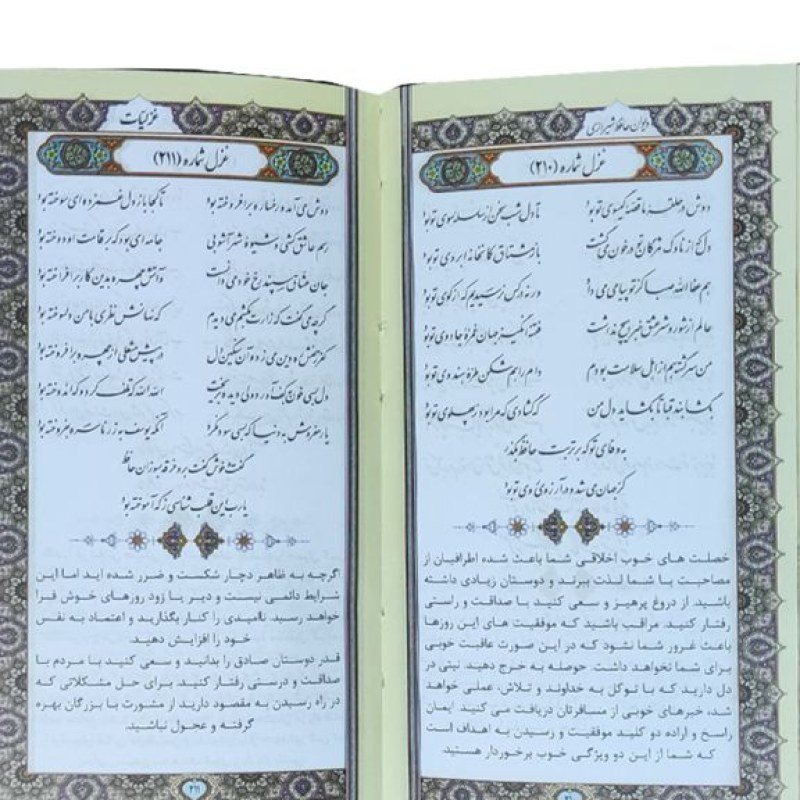 دیوان حافظ شیرازی
غزل شماره (۲۱۰)
دوش در حلقه ما قصه گیسوی تو بود تا دل شب سخن از سلسله موی تو بود
دل که از ناوک مژگان تو در خون می گشت باز مشتاق کمانخانه ابروی تو بود
هم عفا الله صبا کز تو پیامی می داد ور نه در کس نرسیدیم که از کوی تو بود
عالم از شور و شر عشق خبر هیچ نداشت فتنه انگیز جهان غمزه جادوی تو بود
من سرگشته هم از اهل سلامت بودم دام راهم شکن طره هندوی تو بود
بگشا بند قبا تا بگشاید دل من که گشادی که مرا بود ز پهلوی تو بود
به وفای تو که بر تربت حافظ بگذر
کز جهان می شد و در آرزوی روی تو بود
خصلت های خوب اخلاقی شما باعث شده اطرافیان از
مصاحبت با شما لذت ببرند و دوستان زیادی داشته
باشید. از دروغ پرهیز و سعی کنید با صداقت و راستی
رفتار کنید. مراقب باشید که موفقیت های این روزها
باعث غرور شما نشود که در این صورت عاقبت خوبی
برای شما نخواهد داشت. حوصله به خرج دهید. نیتی در
دل دارید که با توکل به خداوند و تلاش، عملی خواهد
شد، خبرهای خوبی از مسافرتان دریافت می کنید. ایمان
راسخ و اراده دو کلید موفقیت و رسیدن به اهداف است
که شما از این دو ویژگی خوب برخوردار هستید.
غزلیات
غزل شماره (۲۱۱)
دوش می آمد و رخساره برافروخته بود تا کجا باز دل غمزده ای سوخته بود
رسم عاشق کشی و شیوه شهر آشوبی جامه ای بود که بر قامت او دوخته بود
جان عشاق سپند رخ خود می دانست و آتش چهره بدین کار برافروخته بود
گرچه می گفت که زارت بکشم می دیدم که نهانش نظری با من دلسوخته بود
کفر زلفش ره دین می زد و آن سنگین دل در پیش مشعلی از چهره برافروخته بود
دل بسی خون به کف آورد ولی دیده بریخت الله الله که تلف کرد و که اندوخته بود
یار مفروش به دنیا که بسی سود نکرد آنکه یوسف به زر ناسره بفروخته بود
گفت و خوش گفت برو خرقه بسوزان حافظ
یارب این قلب شناسی ز که آموخته بود
اگرچه به ظاهر دچار شکست و ضرر شده اید اما این
شرایط دائمی نیست و دیر یا زود روزهای خوش فرا
خواهد رسید. ناامیدی را کنار بگذارید و اعتماد به نفس
خود را افزایش دهید.
قدر دوستان صادق را بدانید و سعی کنید با مردم با
صداقت و درستی رفتار کنید. برای حل مشکلاتی که
در راه رسیدن به مقصود دارید از مشورت با بزرگان بهره
گرفته و عجول نباشید.
۲۱۱